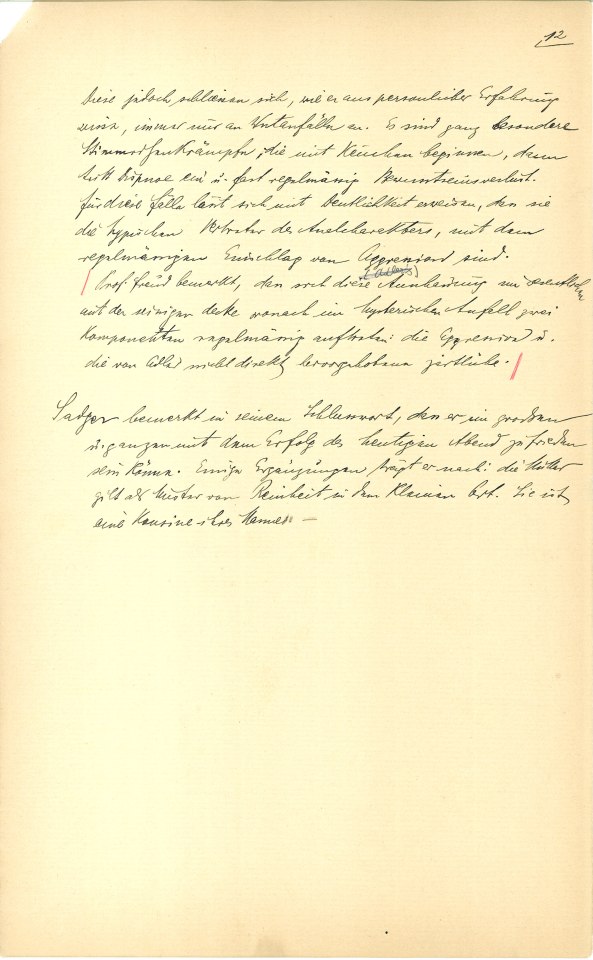 12
Diese jedoch schliessen sich, wie er aus persönlicher Erfahrung
wisse, immer nur an Wutanfälle an. Es sind ganz besondere
Stimmritzenkrämpfe, die mit Keuchen beginnen, dann
tritt Dispnoe ein u. fast regelmässig Bewusstseinsverlust.
Für diese Fälle lässt sich mit Deutlichkeit erweisen, dass sie
die typischen Vertreter des Analcharakters, mit dem
regelmässigen Einschlag von Aggression sind.
Prof. Freud bemerkt, dass sich diese Anschauung (Adlers) im wesentlichen
mit der seinigen decke wonach im hysterischen Anfall zwei
Komponenten regelmässig auftreten: die Aggression u.
die von Adler nicht direkt hervorgehobene zärtliche.
Sadger bemerkt in seinem Schlusswort, dass er im grossen
u. ganzen mit dem Erfolg des heutigen Abend zufrieden
sein könne. Einige Ergänzungen trägt er nach: die Mutter
gilt als Muster von Reinheit in dem kleinen Ort. Sie ist
eine Kousine ihres Mannes. —